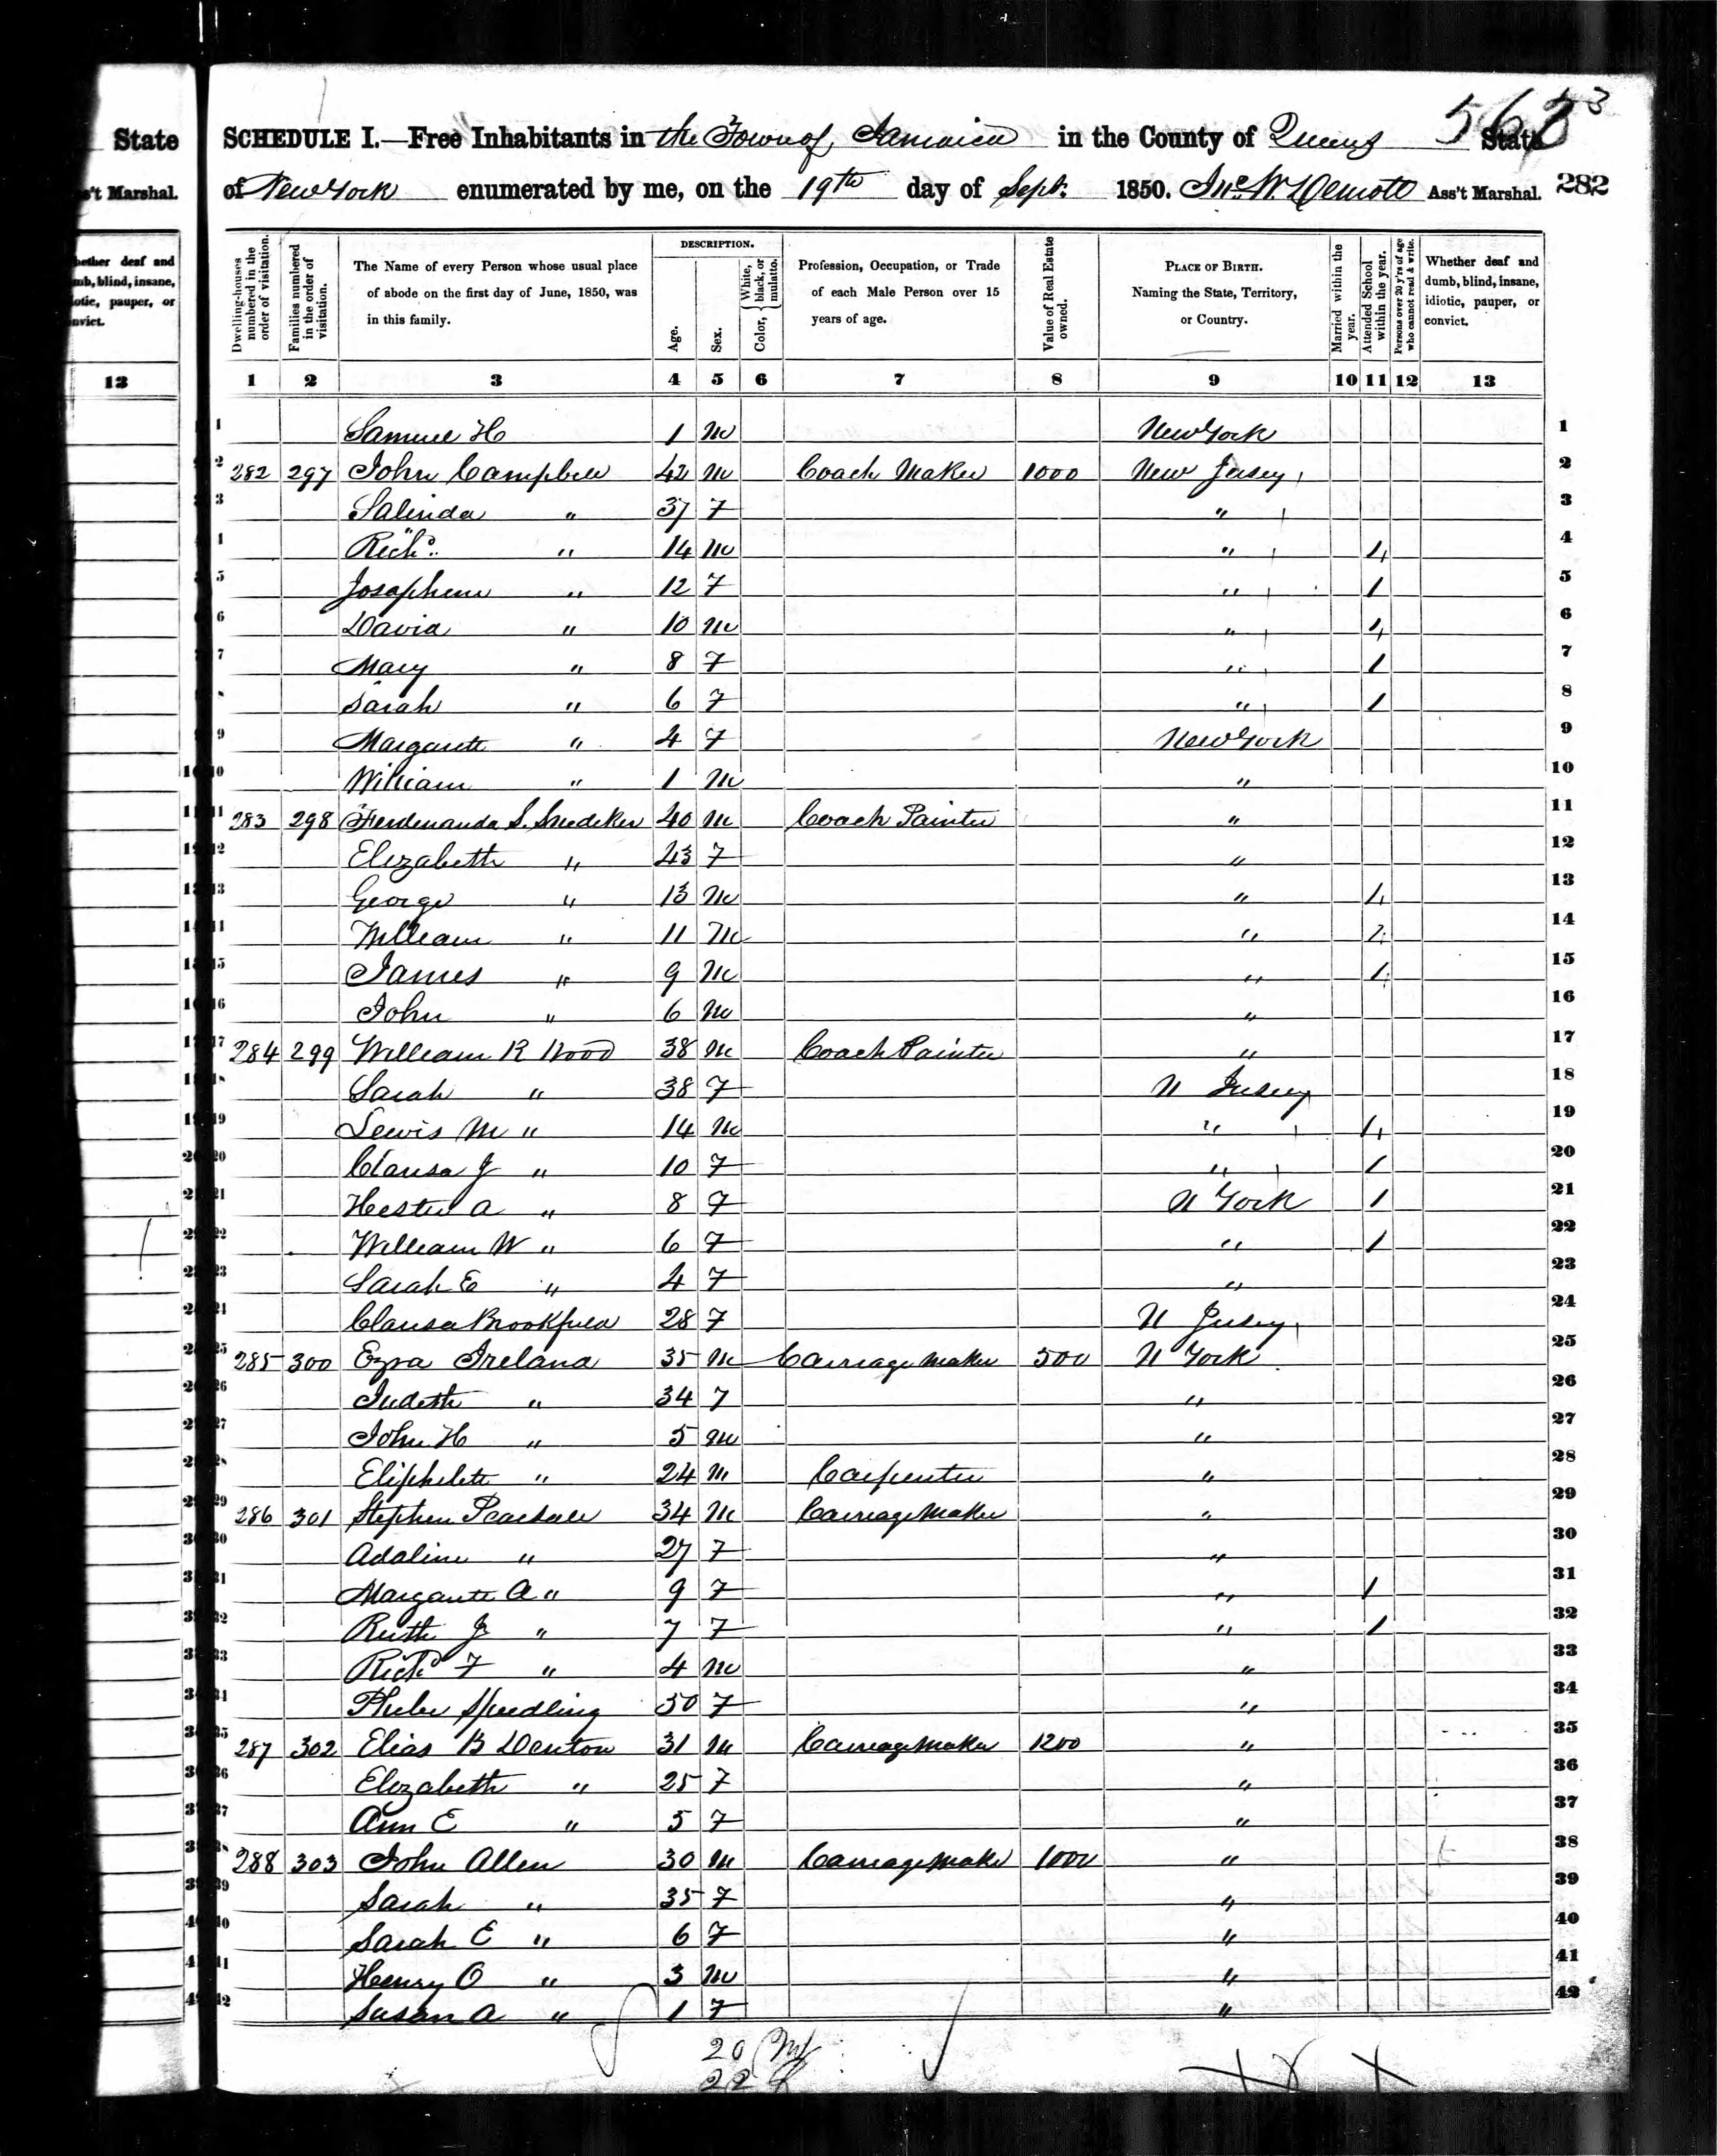 State
's't Marshal.
hether deaf and
mb, blind, insane,
iotic, pauper, or
nvict.
13
563
SCHEDULE I.—Free Inhabitants in the Town of Jamaica in the County of Queens State
of New York enumerated by me, on the 19th day of Sept. 1850. Jno. W. Demott Ass't Marshal. 282
Dwelling-houses numbered in the order of visitation.
Families numbered in the order of visitation.
The Name of every Person whose usual place of abode on the first day of June, 1850, was in this family.
DESCRIPTION.
Age.
Sex.
Color, { White, black, or mulatto.
Profession, Occupation, or Trade of each Male Person over 15 years of age.
Value of Real Estate owned.
PLACE OF BIRTH. Naming the State, Territory, or Country.
Married within the year.
Attended School within the year.
Persons over 20 y'rs of age who cannot read & write.
Whether deaf and dumb, blind, insane, idiotic, pauper, or convict.
1 2 3 4 5 6 7 8 9 10 11 12 13
1 Samuel H 1 M New York 1
2 282 297 John Campbell 42 M Coach Maker 1000 New Jersey 2
3 Salinda " 37 F " 3
4 Richd. " 14 M " 1 4
5 Josephene " 12 F " 1 5
6 David " 10 M " 1 6
7 Mary " 8 F " 1 7
8 Sarah " 6 F " 1 8
9 Margarett " 4 F New York 9
10 William " 1 M " 10
11 283 298 Ferdenanda S. Snedeker 40 M Coach Painter " 11
12 Elizabeth " 43 F " 12
13 George " 13 M " 1 13
14 William " 11 M " 1 14
15 James " 9 M " 1 15
16 John " 6 M " 16
17 284 299 William R Wood 38 M Coach Painter " 17
18 Sarah " 38 F N Jersey 18
19 Lewis M " 14 M " 1 19
20 Clarisa J " 10 F " 1 20
21 Hester A " 8 F N York 1 21
22 William W " 6 F " 1 22
23 Sarah E " 4 F " 23
24 Clarisa Brookfield 28 F N Jersey 24
25 285 300 Ezra Ireland 35 M Carriage Maker 500 N York 25
26 Judeth " 34 F " 26
27 John H " 5 M " 27
28 Eliphelett " 24 M Carpenter " 28
29 286 301 Stephen Pearsall 34 M Carriage Maker " 29
30 Adaline " 27 F " 30
31 Margarett A " 9 F " 1 31
32 Ruth J " 7 F " 1 32
33 Richd F " 4 M " 33
34 Phebe Spedling 50 F " 34
35 287 302 Elias B Denton 31 M Carriage Maker 1200 " 35
36 Elizabeth " 25 F " 36
37 Ann E " 5 F " 37
38 288 303 John Allen 30 M Carriage Maker 1000 " 38
39 Sarah " 35 F " 39
40 Sarah E " 6 F " 40
41 Henry O " 3 M " 41
42 Susan A " 1 F " 42
20 M
22 F